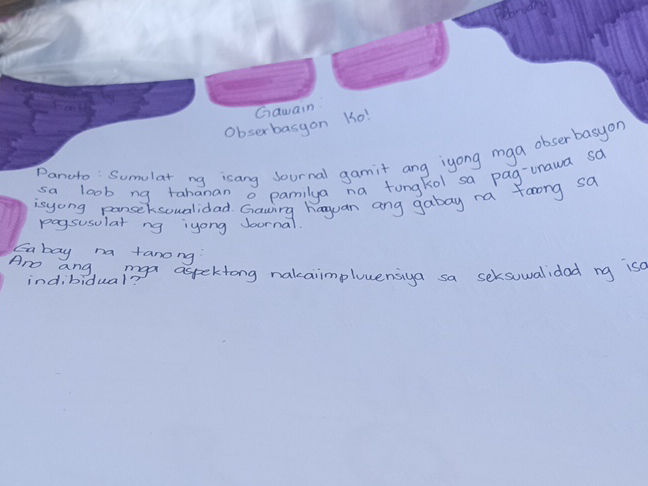 February
Gawain:
Obserbasyon Ko!
Panuto: Sumulat ng isang Journal gamit ang iyong mga obserbasyon
sa loob ng tahanan o pamilya na tungkol sa pag-unawa sa
isyung panseksuwalidad. Gawing hayuan ang gabay na tanong sa
pagsusulat ng iyong Journal.
Gabay na tanong:
Ano ang mga aspektong nakaiimpluwensiya sa seksuwalidad ng isa
indibidual?